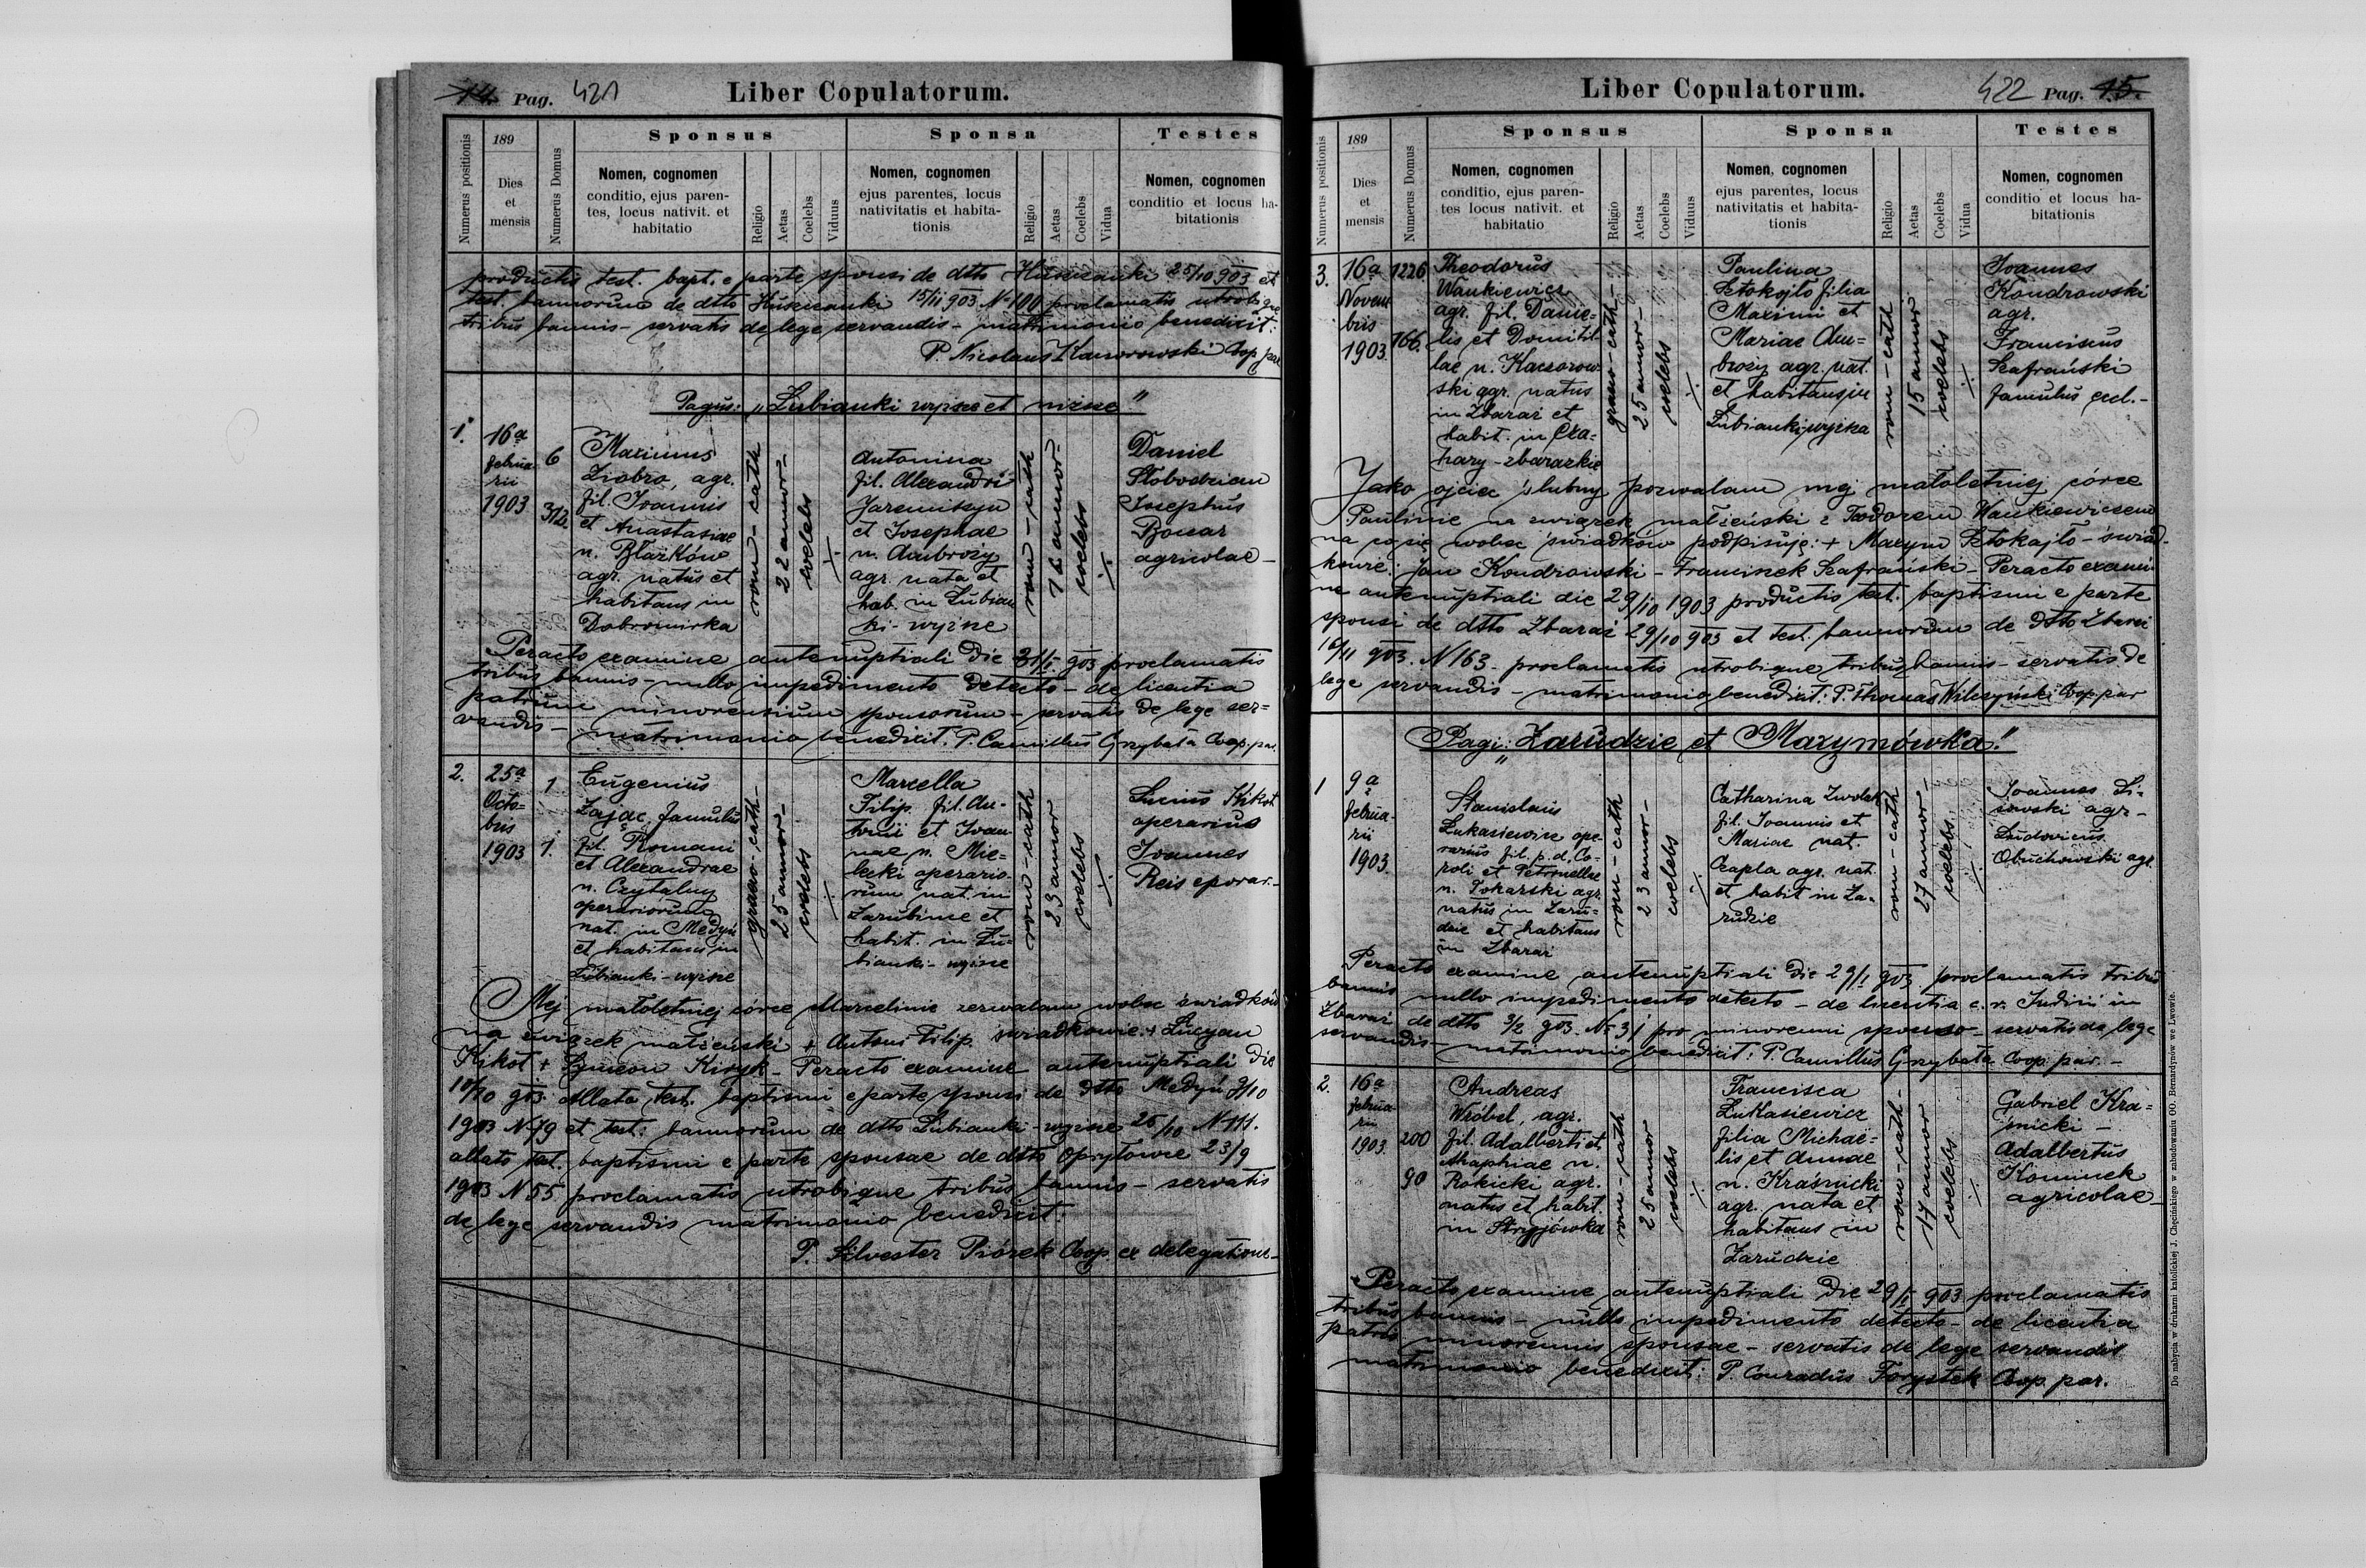 14. Pag. 421
Liber Copulatorum.
Numerus positionis
189
Dies
et
mensis
Numerus Domus
Sponsus
Nomen, cognomen
conditio, ejus paren-
tes, locus nativit. et
habitatio
Religio
Aetas
Coelebs
Viduus
Sponsa
Nomen, cognomen
ejus parentes, locus
nativitatis et habita-
tionis
Religio
Aetas
Coelebs
Vidua
Testes
Nomen, cognomen
conditio et locus ha-
bitationis
productis test. bapt. e parte sponsi de dtto 25/10 903 et
test. bannorum de dtto 15/11 903 No 100 proclamatis utrobique
tribus bannis - servatis de lege servandis - matrimonio benedixit:
P. Nicolaus Coop. par
Pagus: „Łubianki wyższe et niższe"
1.
16a
februa-
rii
1903
6
312
Maximus
Ziobro, agr.
fil. Joannis
et Anastasiae
n. Błażków
agr. natus et
habitans in
Dobromirka
rom - cath
22 annor-
coelebs
Antonina
fil. Alexandri
Jaremitsyn
et Josephae
n. Ambroży
agr. nata et
hab. in Łubian
ki - wyższe
rom - cath
annor-
coelebs
Daniel
Słobodzian
Josephus
agricolae -
Peracto examine antenuptiali die 31/I 903 proclamatis
tribus bannis - nullo impedimento detecto - de licentia
patrum minorennium sponsorum - servatis de lege ser=
vandis - matrimonio benedixit. P. Camillus Grzybała Coop. par.
2.
25a
Octo=
bris
1903
1
1.
Eugenius
Zając, famulus
fil. Romani
et Alexandrae
n. Czytaluy
operariorum
nat. in Medyń
et habitans in
Łubianki - wyższe
graeco - cath -
25 annor -
coelebs
Marcella
Filip. fil. An-
tonii et Joan
nae n. Mie=
lecki operario-
rum nat. in
Zarubińce et
habit. in Łu=
bianki - wyższe
rom - cath
23 annor
coelebs
Lucius Kikot
operarius
Joannes
Reis operar. -
Mej małoletniej córce Marcelinie zezwalam wobec świadków
na związek małżeński + Antoni Filip. świadkowie: + Lucyan
Kikot + Symeon - Peracto examine antenuptiali die
10/10 903 allato test. baptismi e parte sponsi de dtto Medyń 9/10
1903 N 79 et test. bannorum de dtto Łubianki - wyższe 25/10 N 111.
allato test. baptismi e parte sponsae de dtto Opryłowce 23/9
1903 N 55 proclamatis utrobique tribus bannis - servatis
de lege servandis matrimonio benedixit:
P. Silvester Piórek Coop. ex delegatione -
Liber Copulatorum.
422 Pag. 15.
Numerus positionis
189
Dies
et
mensis
Numerus Domus
Sponsus
Nomen, cognomen
conditio, ejus paren-
tes locus nativit. et
habitatio
Religio
Aetas
Coelebs
Viduus
Sponsa
Nomen, cognomen
ejus parentes, locus
nativitatis et habita-
tionis
Religio
Aetas
Coelebs
Vidua
Testes
Nomen, cognomen
conditio et locus ha-
bitationis
3.
16a
Novem
bris
1903.
1226
166.
Theodorus
Wankiewicz
agr. fil. Danie=
lis et Domitil-
lae n. Kaczorow
ski agr. natus
in Zbaraż et
habit. in Cza=
hary - zbarazkie
graeco - cath -
25 annor -
coelebs
Paulina
Setokajło filia
Maximi et
Mariae Am=
broży agr. nat.
et habitans in
Łubianki wyższe
rom - cath
15 annor
coelebs
Joannes
Kondrowski
agr.
Franciscus
Szafrański
famulus eccl. -
Jako ojciec ślubny pozwalam mej małoletniej córce
Paulinie na związek małżeński z Teodorem Wankiewiczem
na co się wobec świadków podpisuję: + Maxym Setokajło - świad-
kowie: Jan Kondrowski - Franciszek Szafrański - Peracto exami
ne antenuptiali die 29/10 1903 productis test. baptismi e parte
sponsi de dtto Zbaraż 29/10 903 et test. bannorum de dtto Zbaraż
16/11 903. N 163 - proclamatis utrobique tribus bannis - servatis de
lege servandis - matrimonio benedixit: P. Thomas Wilczyński Coop. par
Pagi: „Zarudzie et Maxymówka."
1
9a
februa-
rii
1903.
Stanislaus
Łukasiewicz ope-
rarius fil. p. d. Ca-
roli et Petronellae
n. Tokarski agr.
natus in Zaru=
dzie et habitans
in Zbaraż
rom - cath
23 annor -
coelebs
Catharina
fil. Joannis et
Mariae nat.
Czapla agr. nat.
et habit in Za-
rudzie
rom - cath
27 annor -
coelebs.
Joannes Li-
sowski agr -
Ludovicus
Obuchowski agr.
Peracto examine antenuptiali die 29/I 903 proclamatis tribus
bannis nullo impedimento detecto - de licentia c. r. Judicii in
Zbaraż de dtto 3/2 903 No 31 pro minorenni sponso - servatis de lege
servandis - matrimonio benedixit: P. Camillus Grzybała Coop. par. -
2.
16a
februa-
rii
1903.
200
90
Andreas
Wróbel, agr.
fil. Adalberti et
Ahaphiae n.
Rokicki agr.
natus et habit.
in Stryjówka
rom - cath
25 annor
coelebs
Francisca
Łukasiewicz
filia Michae=
lis et Annae
n. Krasnicki
agr. nata et
habitans in
Zarudzie
rom - cath -
17 annor
coelebs
Gabriel Kra=
snicki -
Adalbertus
Kominek
agricolae -
Peracto examine antenuptiali die 29/I 903 proclamatis
tribus bannis - nullo impedimento detecto - de licentia
patris minorennis sponsae - servatis de lege servandis
matrimonio benedixit: P. Conradus Forystek Coop. par.
Do nabycia w drukarni katolickiej J. Chęcińskiego w zabudowaniu OO. Bernardynów we Lwowie.